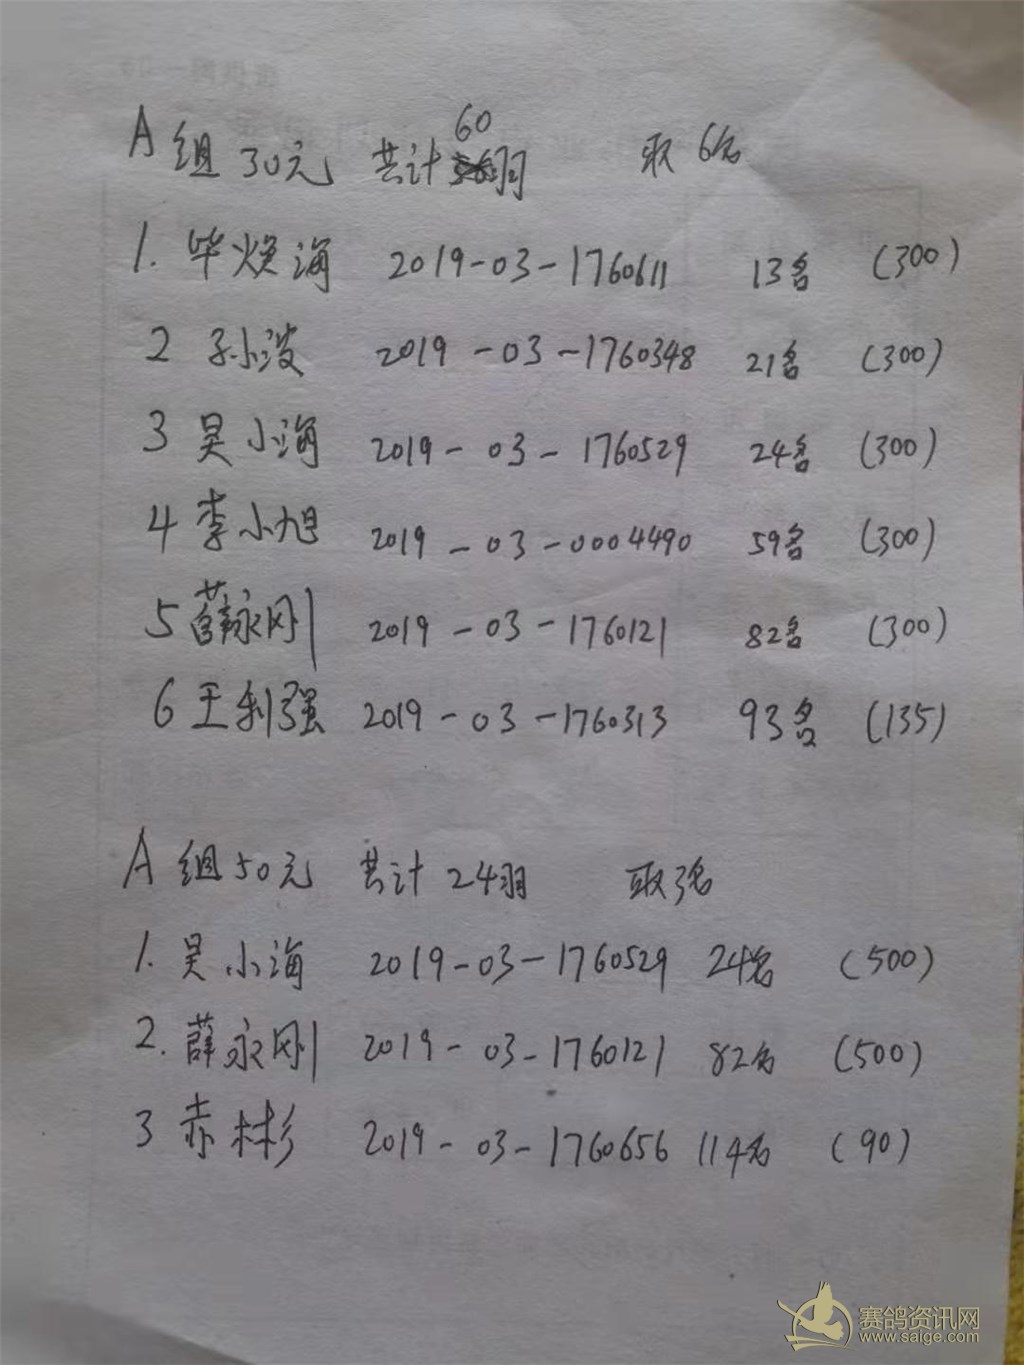 A组30元 共计60羽 取6名
1. 毕焕海 2019-03-1760611 13名 (300)
2 孙波 2019-03-1760348 21名 (300)
3 吴小海 2019-03-1760529 24名 (300)
4 李小旭 2019-03-0004490 59名 (300)
5 薛永刚 2019-03-1760121 82名 (300)
6 王利强 2019-03-1760313 93名 (135)
A组50元 共计24羽 取3名
1. 吴小海 2019-03-1760529 24名 (500)
2. 薛永刚 2019-03-1760121 82名 (500)
3 赤彬 2019-03-1760656 114名 (90)
赛鸽资讯网
www.saige.com